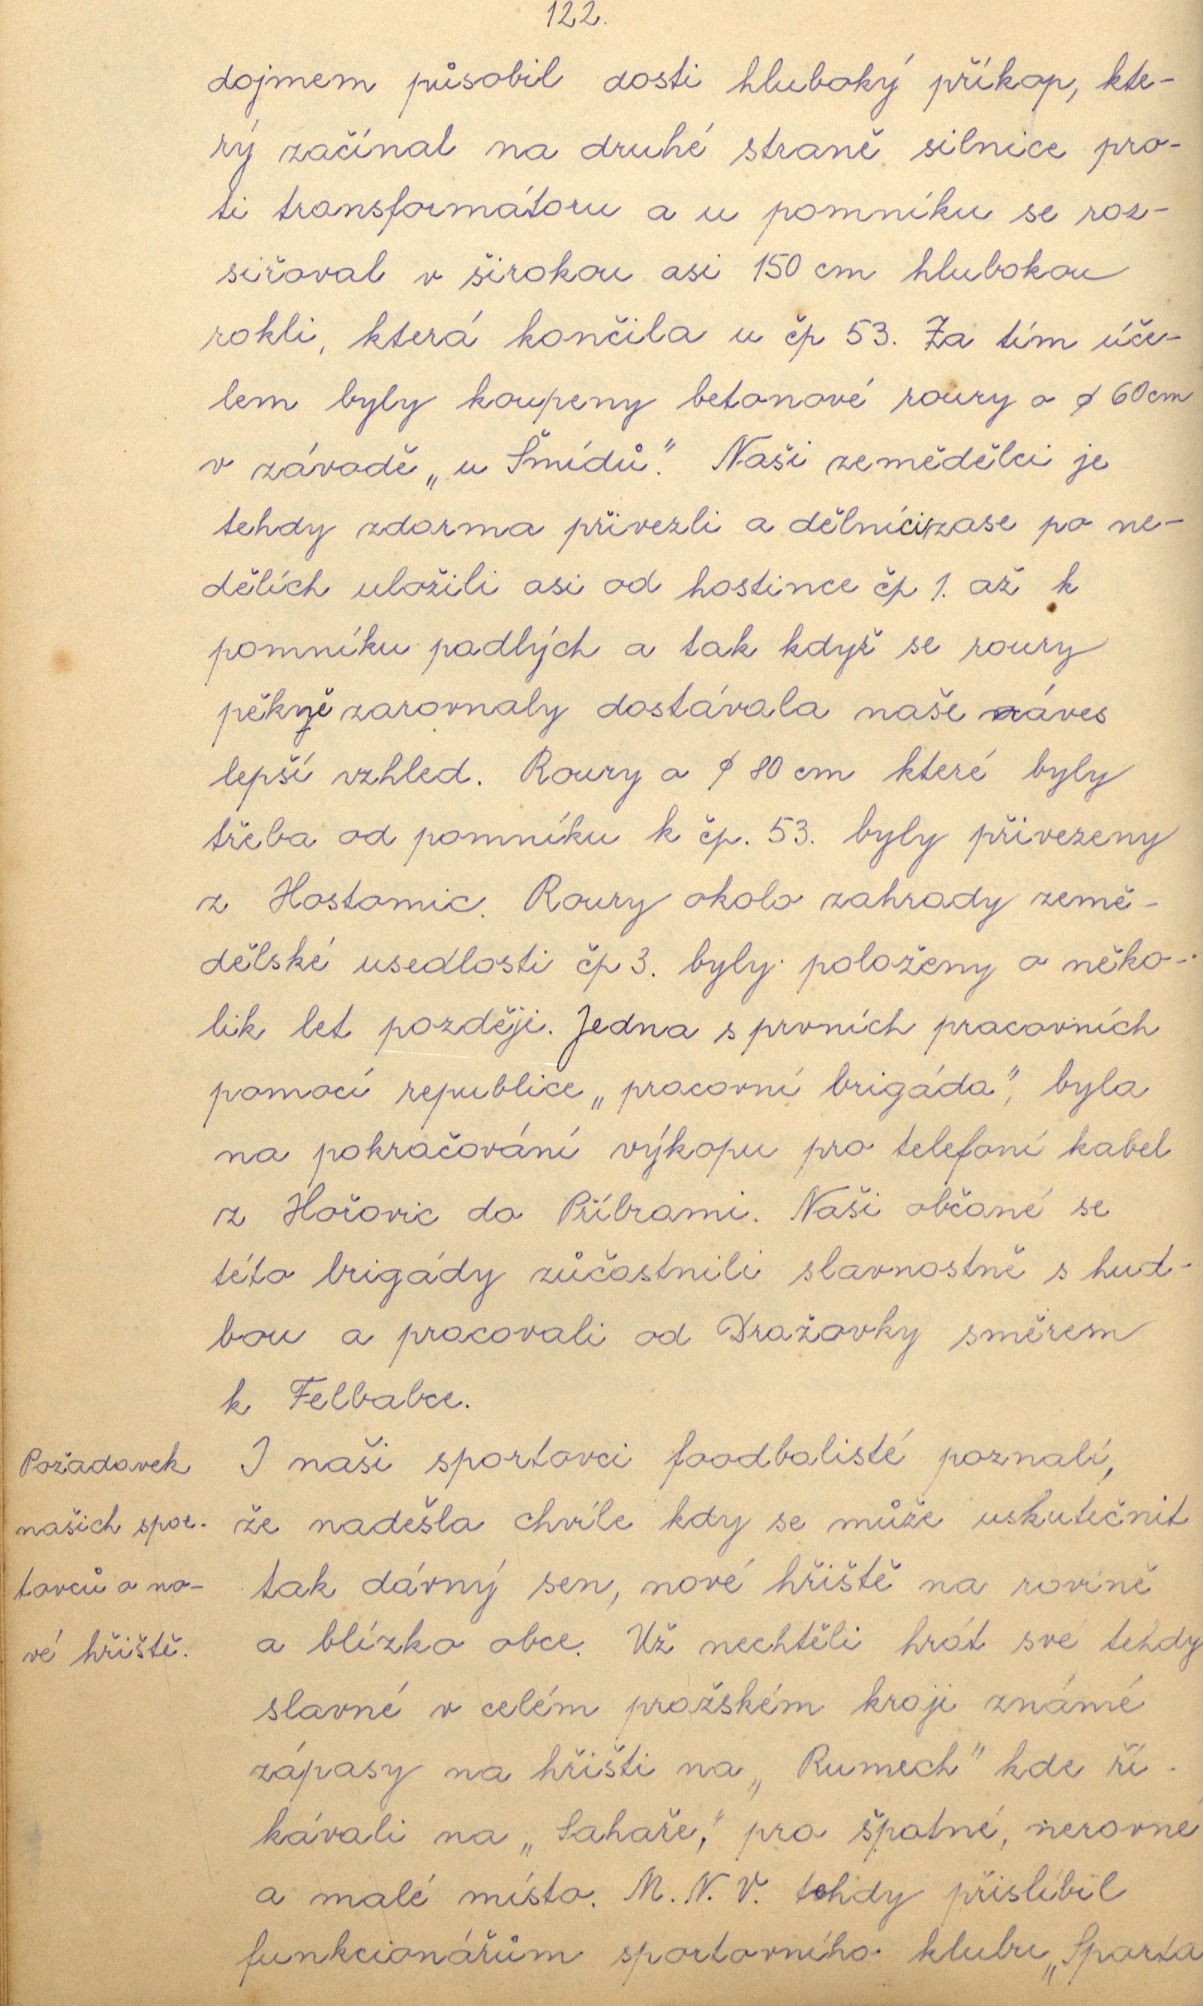 122.
dojmem působil dosti hluboký příkop, kte-
rý začínal na druhé straně silnice pro-
ti transformátoru a u pomníku se roz-
siřoval v širokou asi 150 cm hlubokou
rokli, která končila u čp 53. Za tím úče-
lem byly koupeny betonové roury o ø 60cm
v závodě „u Šmídů." Naši zemědělci je
tehdy zdarma přivezli a dělníci zase po ne-
dělích uložili asi od hostince čp 1. až k
pomníku padlých a tak když se roury
pěkně zarovnaly dostávala naše náves
lepší vzhled. Roury o ø 80 cm které byly
třeba od pomníku k čp. 53. byly přivezeny
z Hostomic. Roury okolo zahrady země-
dělské usedlosti čp 3. byly položeny o něko-
lik let později. Jedna s prvních pracovních
pomocí republice „pracovní brigáda", byla
na pokračování výkopu pro telefoní kabel
z Hořovic do Příbrami. Naši občané se
této brigády zůčastnili slavnostně s hud-
bou a pracovali od Dražovky směrem
k Felbabce.
Požadavek
našich spor-
tovců o no-
vé hřiště.
I naši sportovci foodbalisté poznali,
že nadešla chvíle kdy se může uskutečnit
tak dávný sen, nové hřiště na rovině
a blízko obce. Už nechtěli hrát své tehdy
slavné v celém pražském kraji známé
zápasy na hřišti na „Rumech" kde ří-
kávali na „Sahaře," pro špatné, nerovné
a malé místo. M. N. V. tehdy přislíbil
funkcionářům sportovního klubu „Sparta